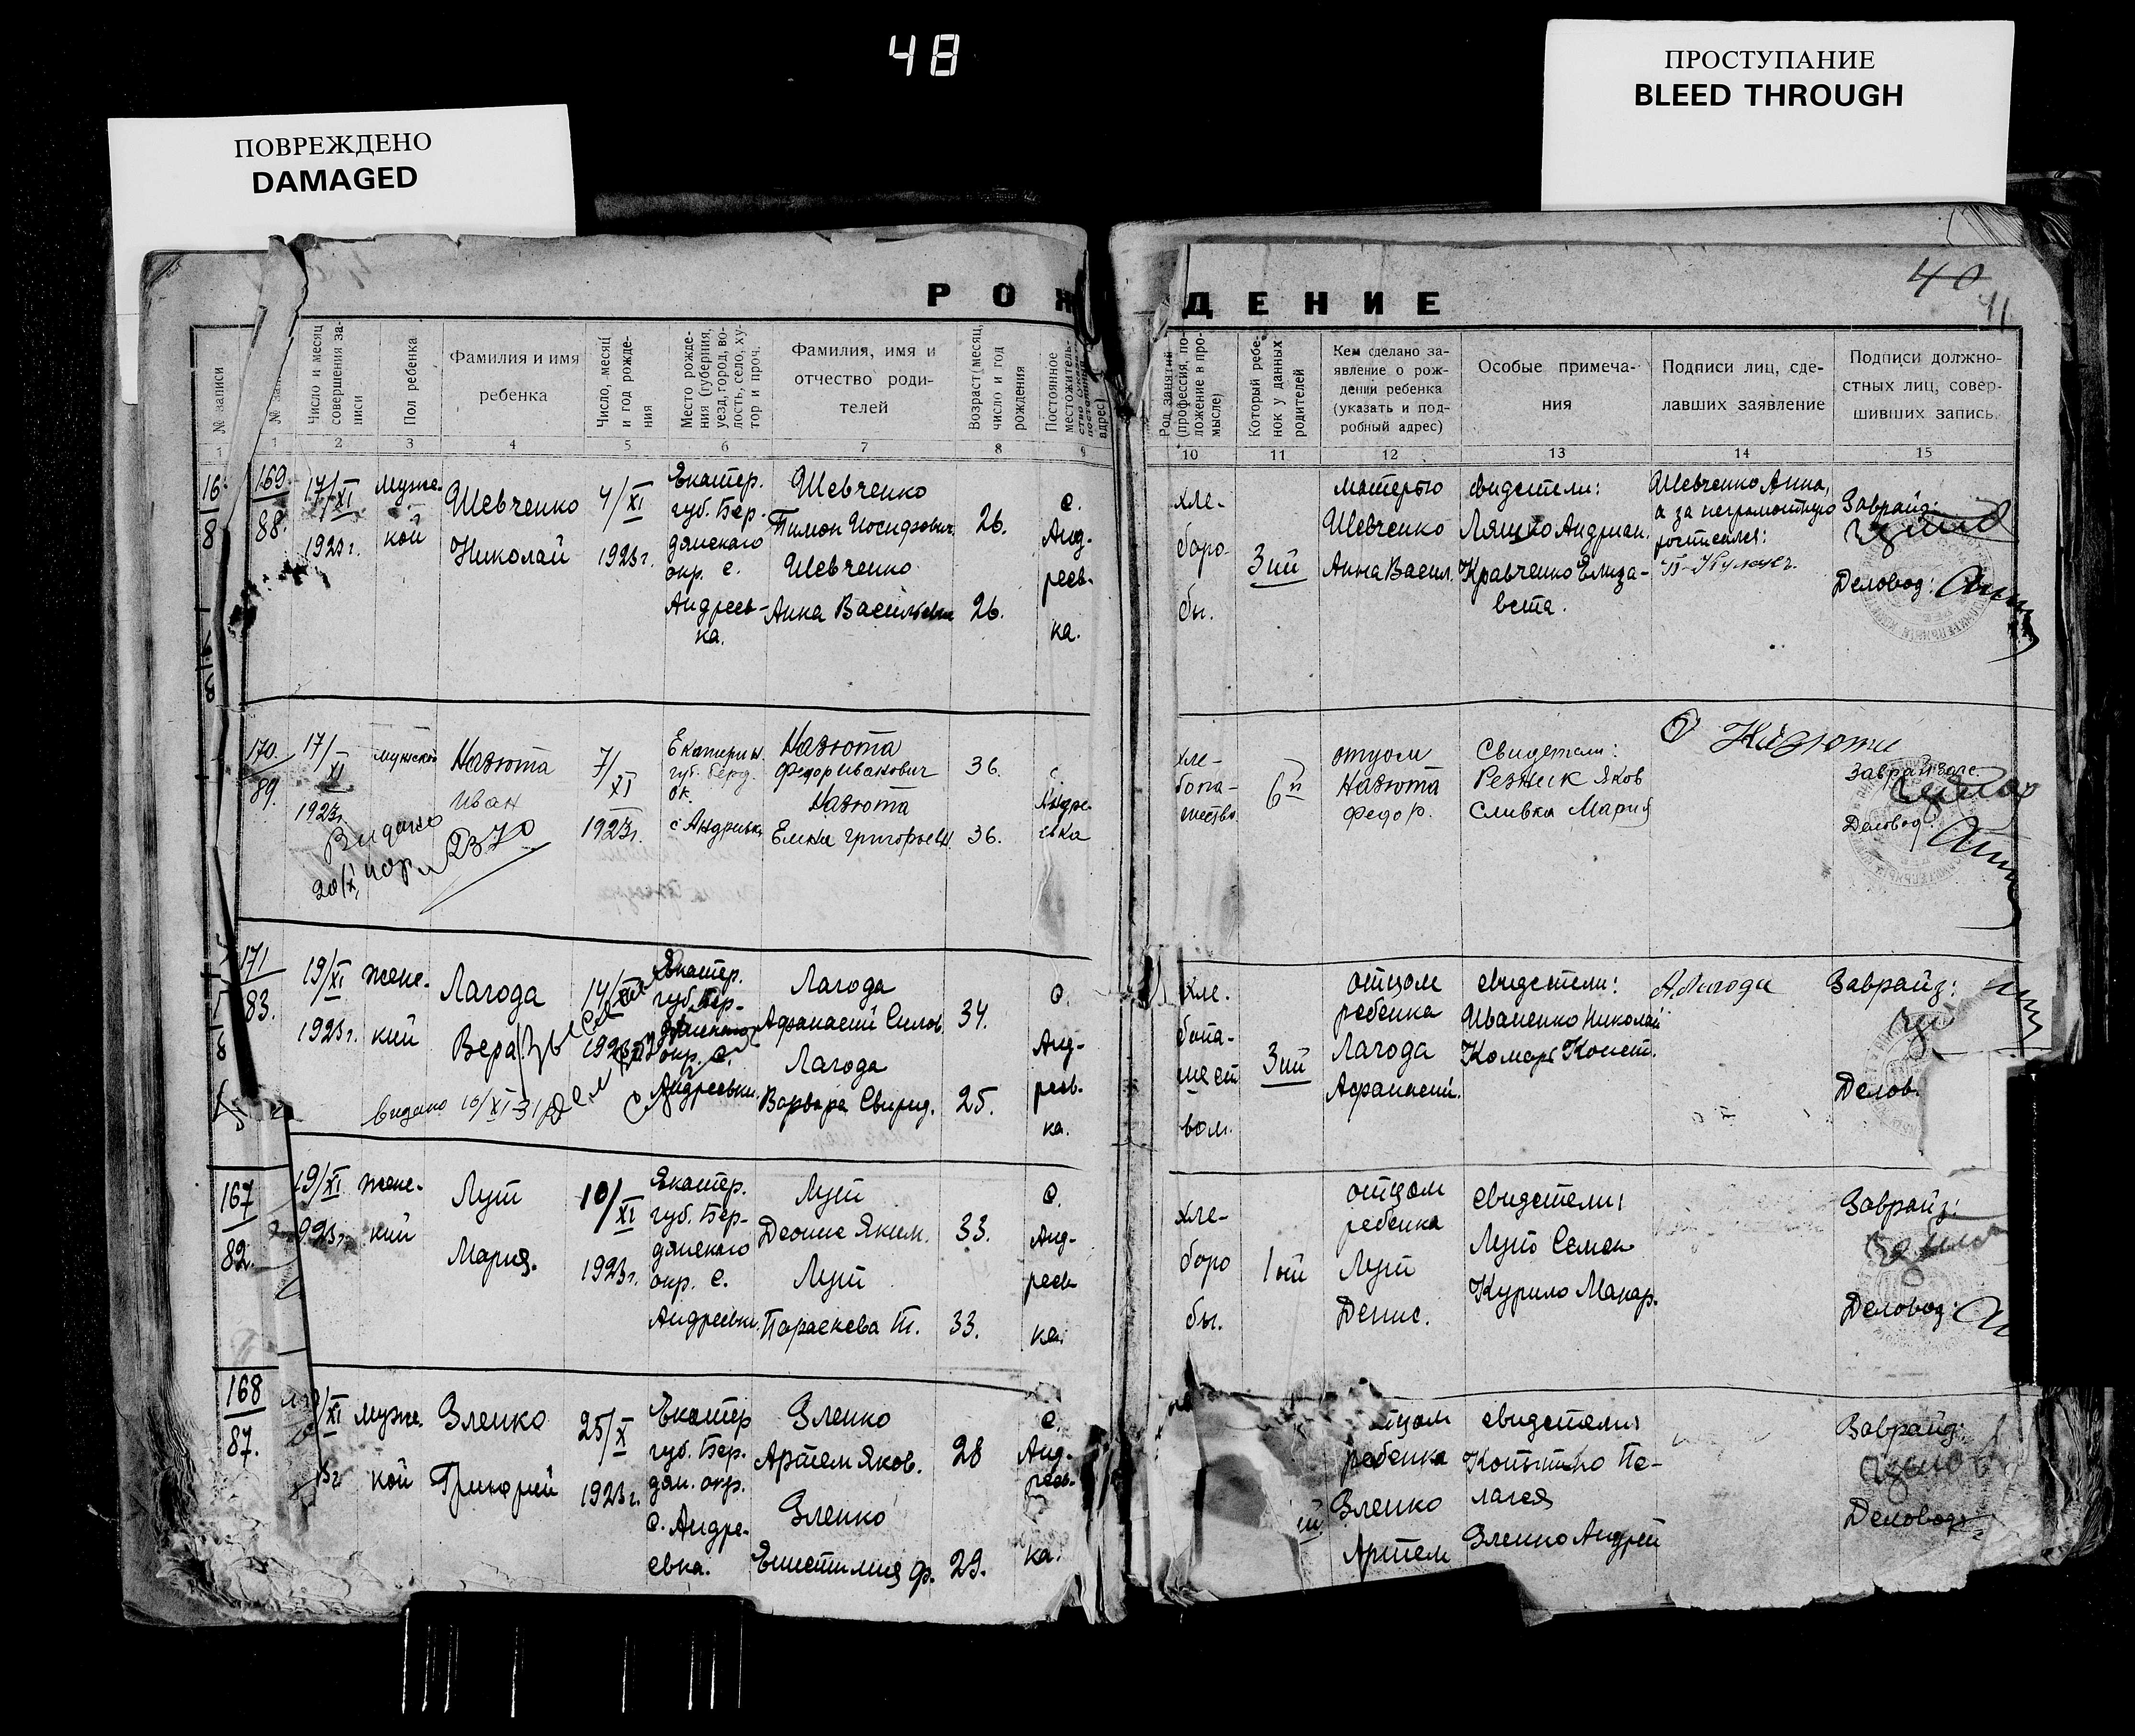 48
ПОВРЕЖДЕНО
DAMAGED
ПРОСТУПАНИЕ
BLEED THROUGH
40
41
РОЖДЕНИЕ
№ записи
Число и месяц совершения записи
Пол ребенка
Фамилия и имя
ребенка
Число, месяц и год рождения
Место рождения (губерния, уезд, город, волость, село, хутор и проч.
Фамилия, имя и
отчество роди-
телей
Возраст (месяц, число и год рождения
Постоянное местожитель-
адрес)
Род занятий (профессия, положение в промысле)
Который ребенок у данных родителей
Кем сделано за-
явление о рож-
дении ребенка
(указать и под-
робный адрес)
Особые примеча-
ния
Подписи лиц, сде-
лавших заявление
Подписи должно-
стных лиц, совер-
шивших запись.
1 2 3 4 5 6 7 8 9 10 11 12 13 14 15
169
88.
17/XI
1923г.
муже-
кой
Шевченко
Николай
4/XI
1923г.
Екатер.
губ. Бер-
дянского
окр. с.
Андреев-
ка.
Шевченко
Тимон Иосифович
Шевченко
Анна Васильевна
26.
26.
с.
Анд-
реев-
ка.
хле-
боро-
бы.
3ий
матерью
Шевченко
Анна Васил.
свидетели:
Ляшко Андриан.
Кравченко Елиза-
вета.
Шевченко Анна,
а за неграмотную
Заврайз:
Деловод:
170
89.
17/XI
1923г.
мужской
Назюта
Иван
7/XI
1923г.
Екатерин
губ. берд.
ок.
с Андреевк
Назюта
Федор Иванович
Назюта
Елена Григорьевн.
36.
36.
с.
Андре-
евка
хле-
бопа-
шество
6й
отцом
Назюта
Федор.
Свидетели:
Резник Яков
Сливка Мария
Назюта
Деловод:
171
83.
19/XI
1923г.
жене-
кий
Лагода
Вера
14/XI
1923г.
Екатер.
губ. Бер-
дянского
окр. с.
Андреевки.
Лагода
Афанасий Силов.
Лагода
Варвара Свирид.
34.
25.
с.
Анд-
реев-
ка.
хле-
бопа-
шест
вом.
3ий
отцом
ребенка
Лагода
Афанасий.
свидетели:
Иваненко Николай
Комарь Конст.
А.Лагода
Заврайз:
Делов.
видано 10/XI-31
167
82.
19/XI
923г.
жене-
кий
Лут
Мария.
10/XI
1923г.
Екатер.
губ. Бер-
дянского
окр. с.
Андреевки.
Лут
Деонис Яким.
Лут
Параскева Т.
33.
33.
с.
Анд-
реев-
ка.
хле-
боро
бы.
1ый
отцом
ребенка
Лут
Денис.
свидетели:
Лут Семен
Курило Макар.
Заврайз:
Деловод:
168
87.
/XI
муже.
кой
Зленко
Григорий
25/X
1923г.
Екатер
губ. Бер.
дян. окр.
с. Андре-
евка.
Зленко
Артем Яков.
Зленко
28
29.
с.
Анд-
реев-
ка.
ребенка
Зленко
Артем
свидетели:
Копытко Пе-
лагея
Зленко Андрей
Заврайз:
Деловод: